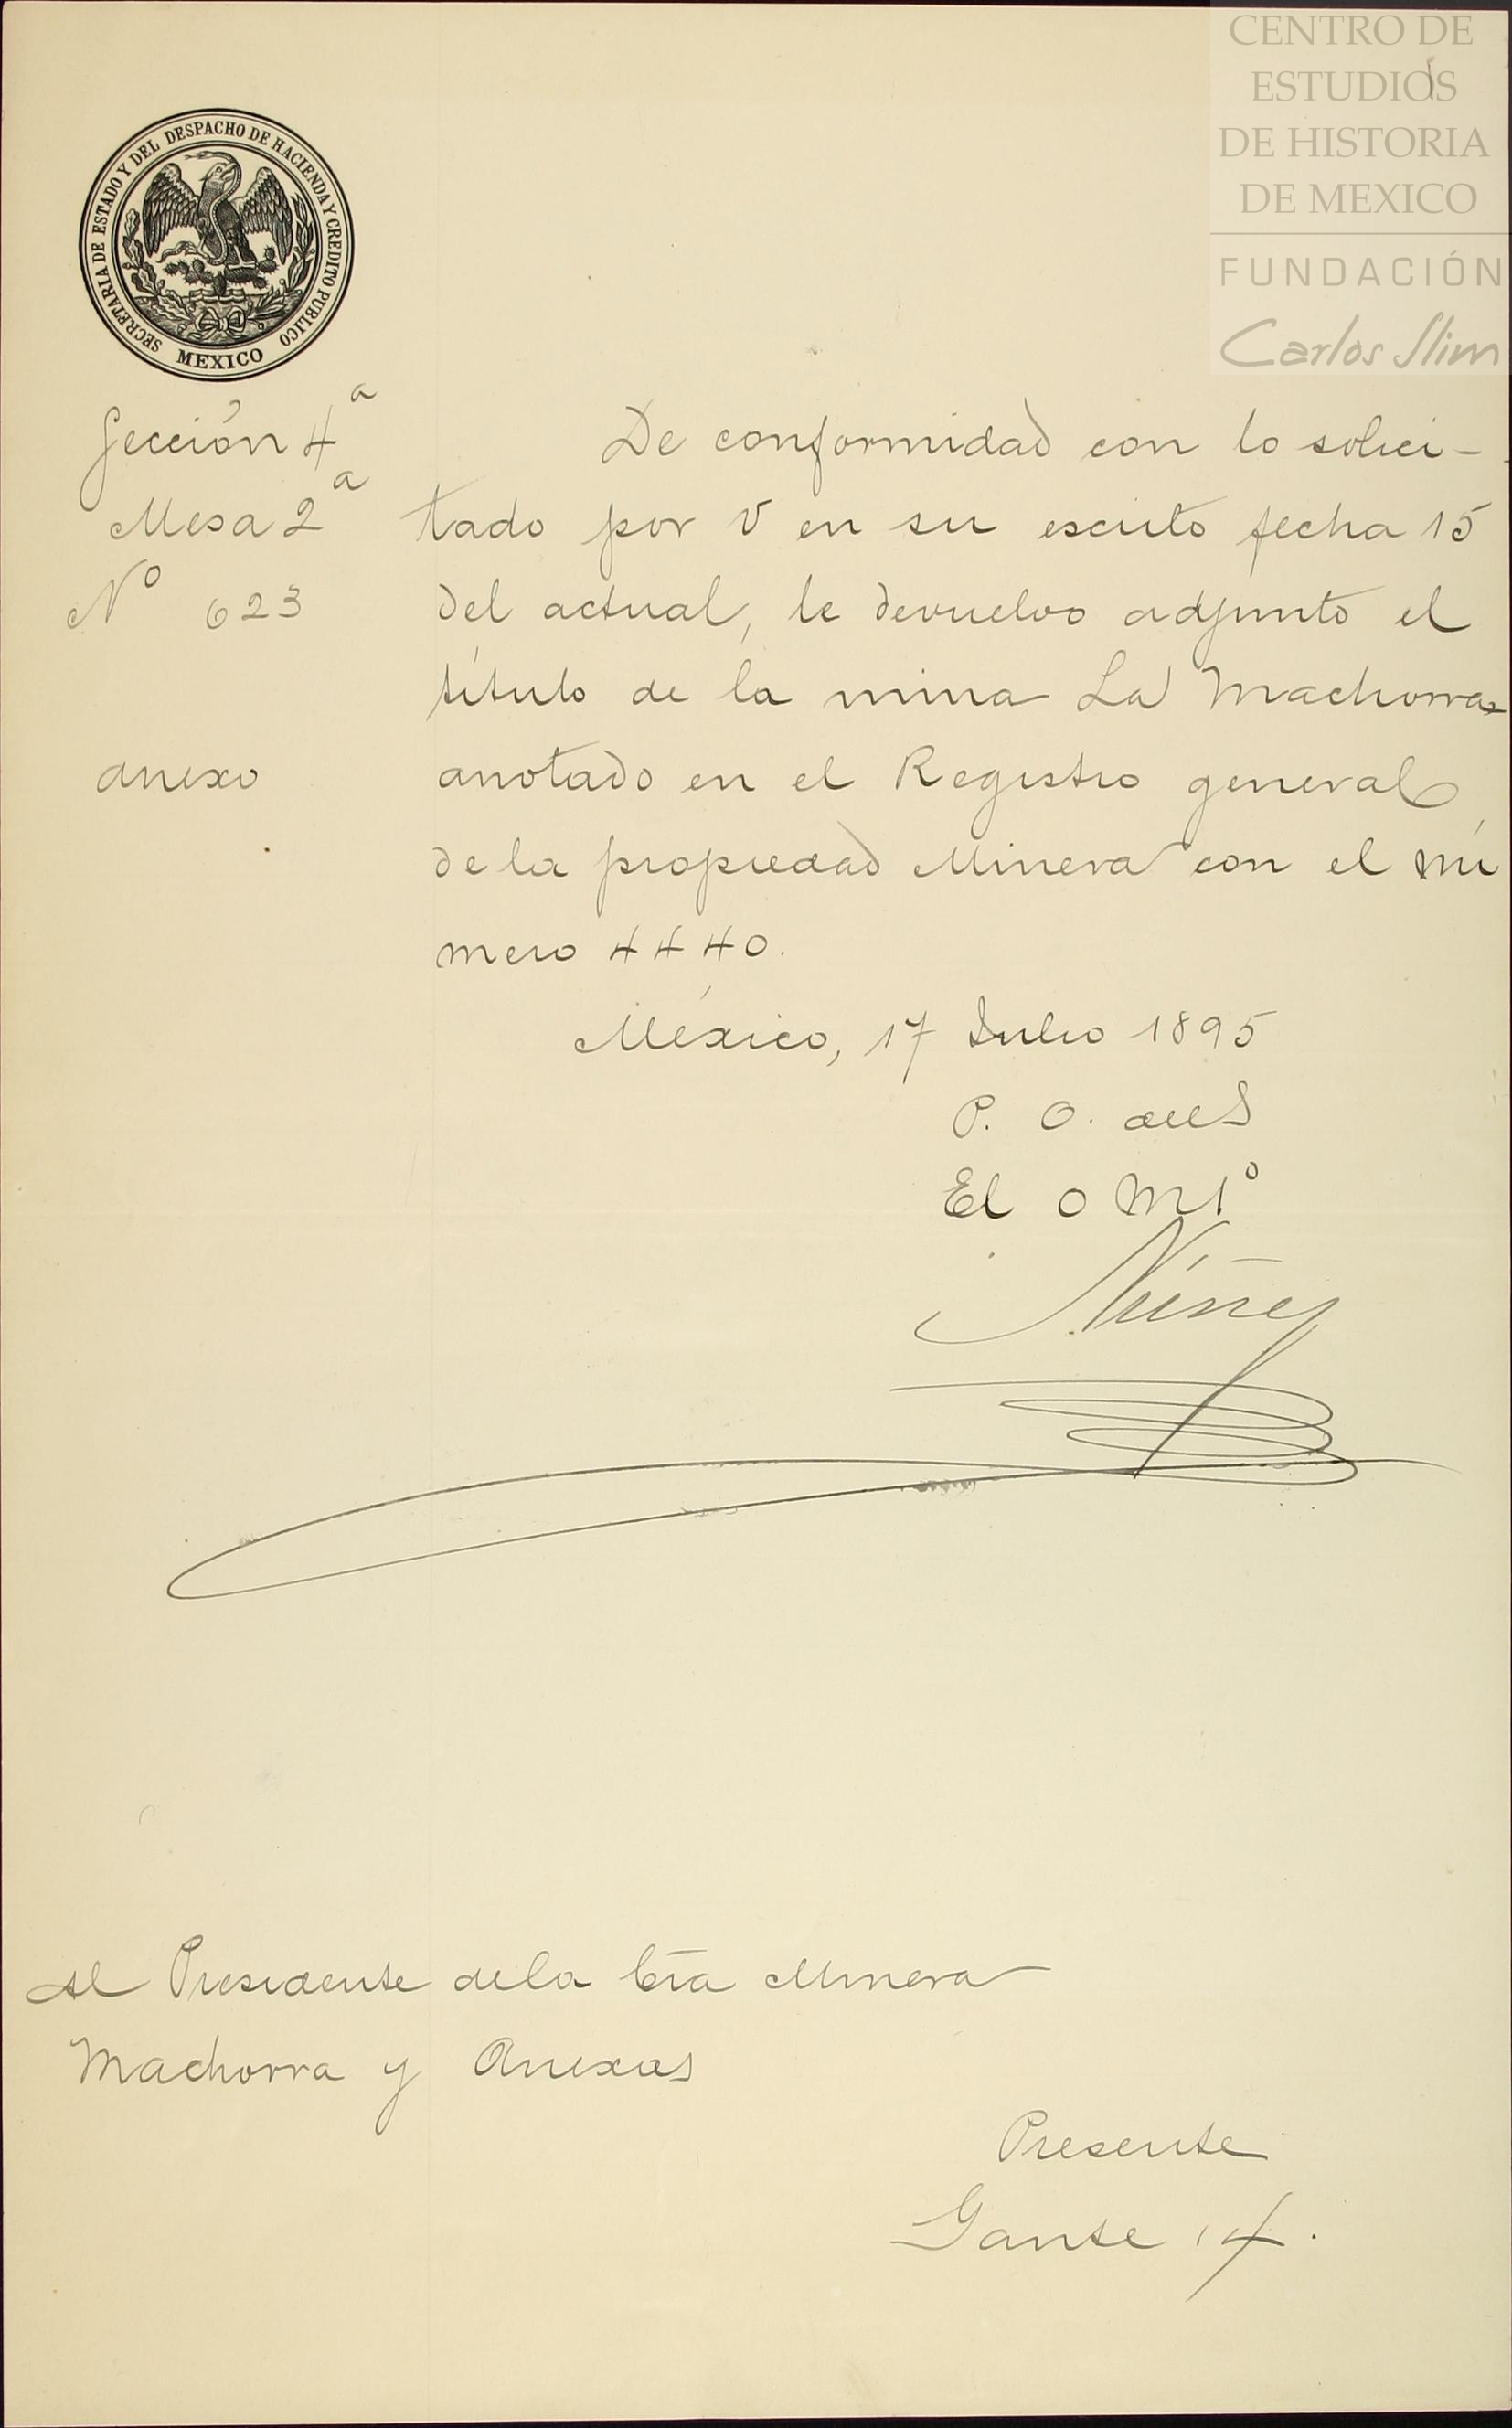 CENTRO DE
ESTUDIOS
DE HISTORIA
DE MEXICO
FUNDACIÓN
Carlos Slim
SECRETARIA DE ESTADO Y DEL DESPACHO DE HACIENDA Y CREDITO PUBLICO
MEXICO
Sección 4ª
Mesa 2ª
Nº 623
anexo
De conformidad con lo solici-
tado por V en su escrito fecha 15
del actual, le devuelvo adjunto el
título de la mina La Machorra
anotado en el Registro general
de la propiedad Minera con el nú
mero 4440.
México, 17 Julio 1895
P. O. del S
El O M 1º
Núñez
Al Presidente de la Cía Minera
Machorra y Anexas
Presente
Gante 14.